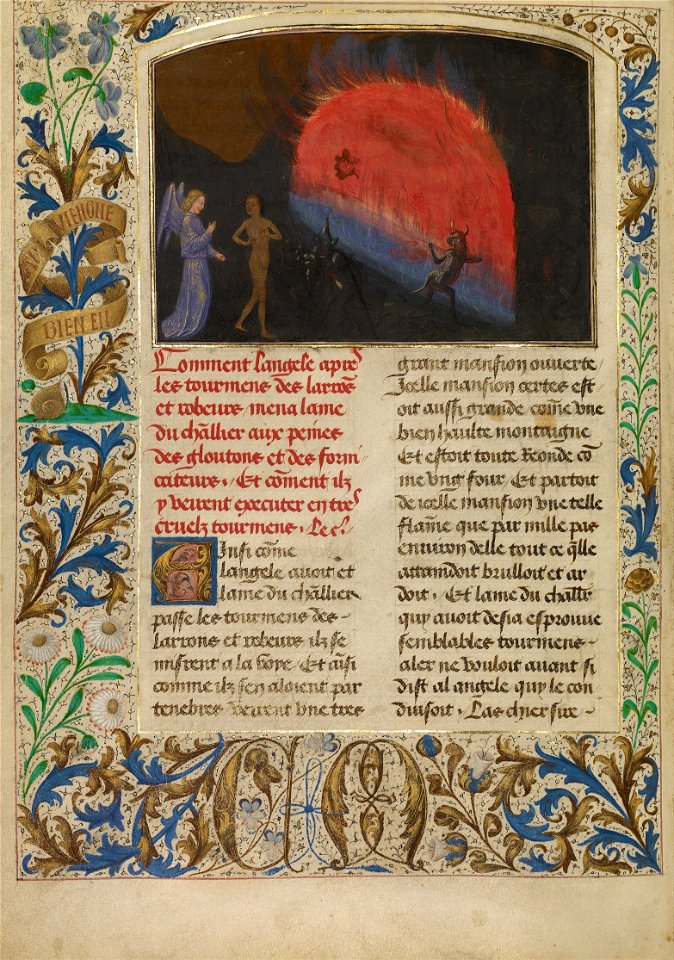 AVIENGNE
BIEN EN
Comment langele apres
les tourmens des larrons
et robeurs mena lame
du chllier aux peines
des gloutons et des forni
cateurs. Et cõment ilz
y veirent executer en tres
cruelz tourmens. Le c.
Ainsi cõme
langele auoit et
lame du challier
passe les tourmens des
larrons et robeurs ilz se
misrent a la voye. Et aĩsi
comme ilz sen aloient par
tenebres veirent vne tres
grant mansion ouuerte
Icelle mansion certes est
oit aussi grande cõme vne
bien haulte montaigne
Et estoit toute reonde cõ
me vng four. Et partoit
de icelle mansion vne telle
flame que par mille pas
enuiron delle tout ce q̃lle
attaindoit brulloit et ar
doit. Et lame du challr
quy auoit desia esprouue
semblables tourmens
aler ne vouloit auant si
dist al angele quy le con
duisoit. Las chier sire
CM